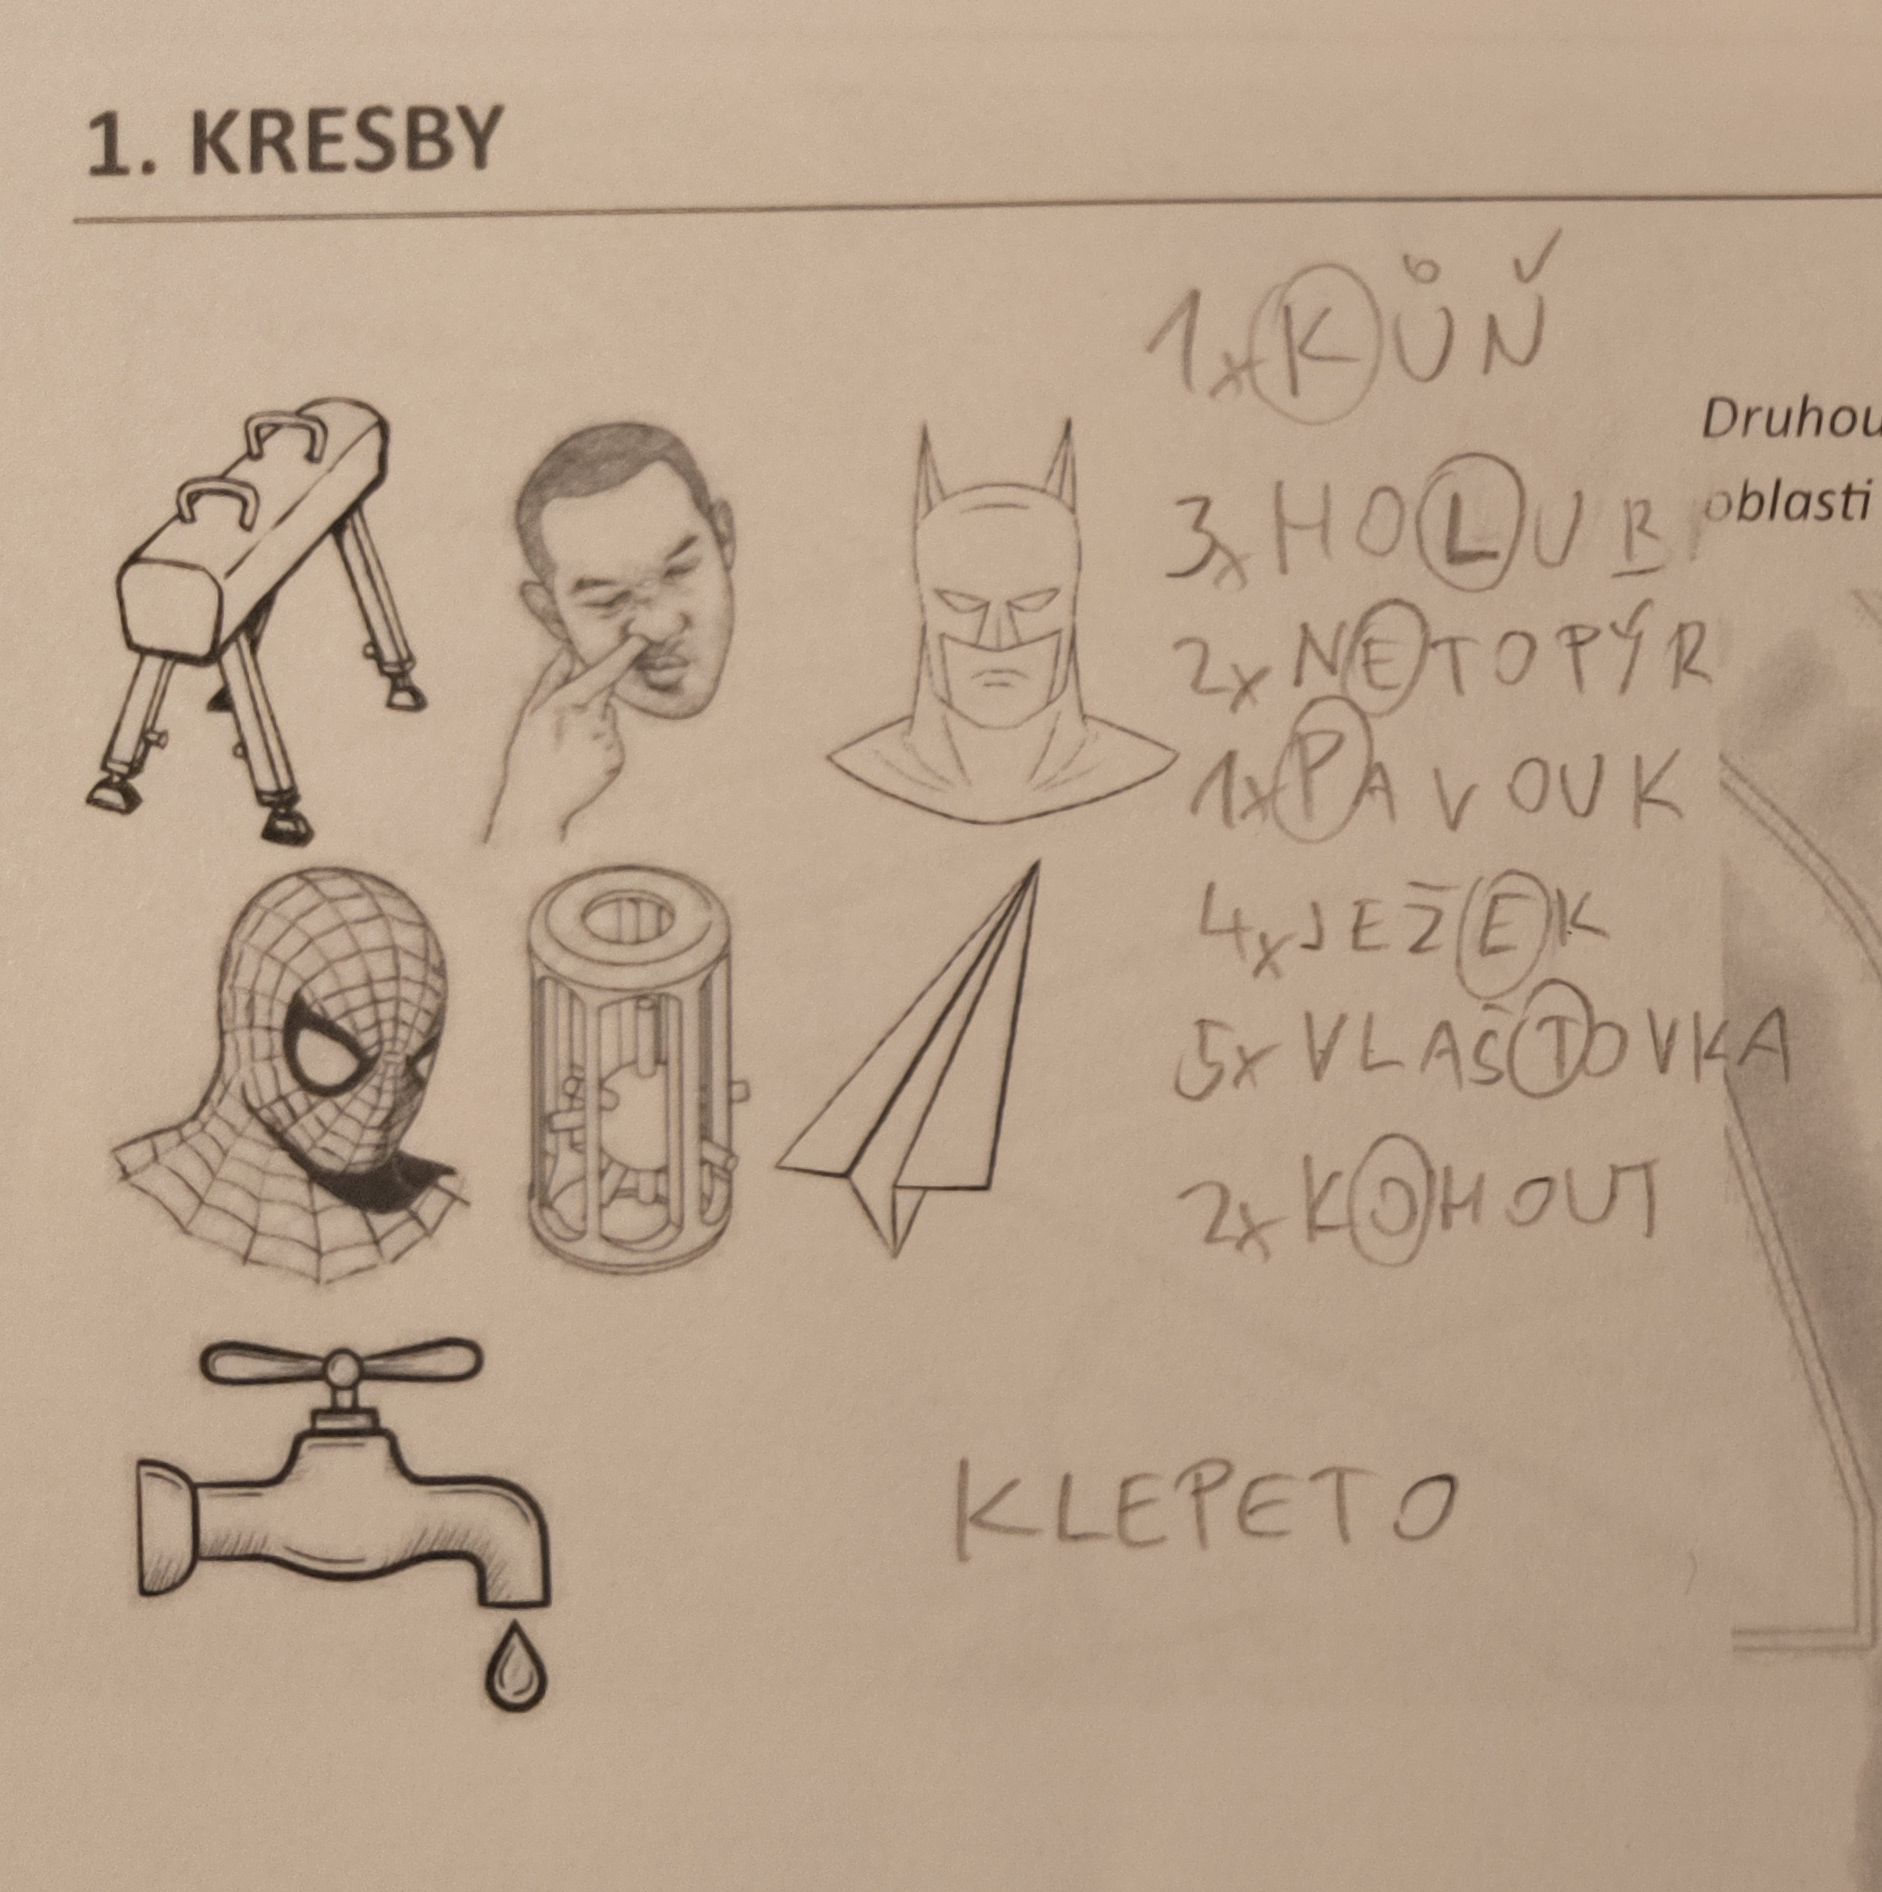 1. KRESBY
1x KŮŇ
Druhou
3x HOLUB
oblasti
2x NETOPÝR
1x PAVOUK
4x JEŽEK
5x VLAŠTOVKA
2x KOHOUT
KLEPETO